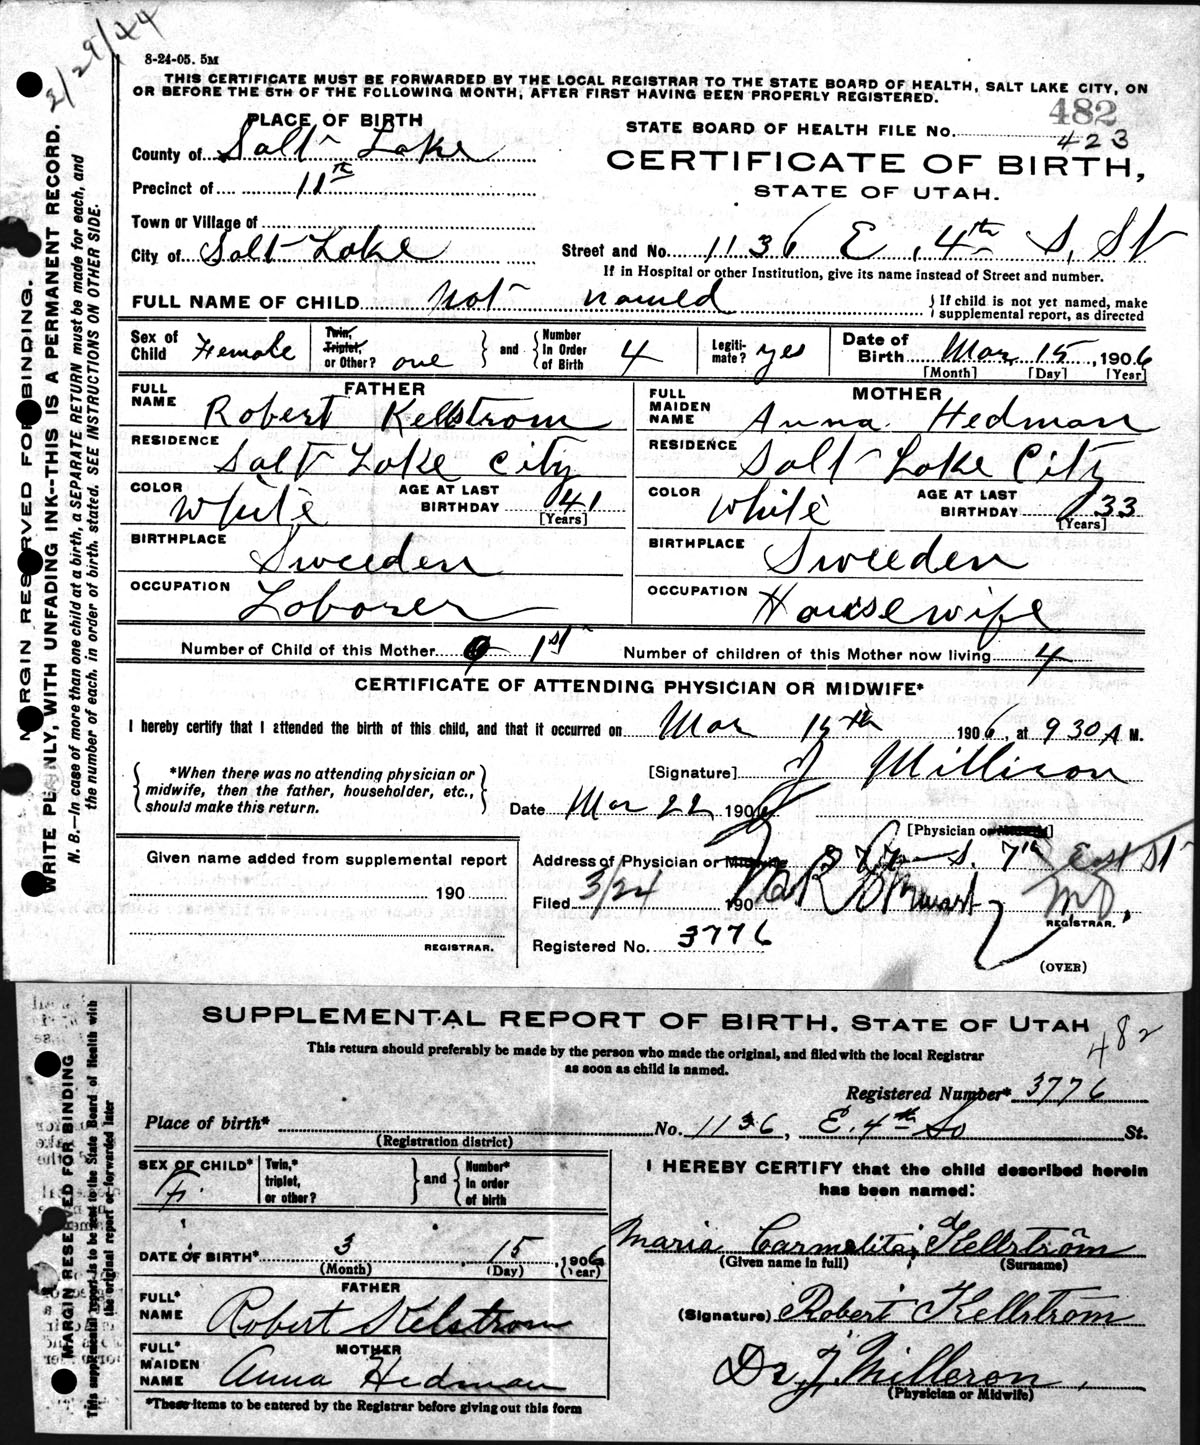 2/29/44
8-24-05. 5M
THIS CERTIFICATE MUST BE FORWARDED BY THE LOCAL REGISTRAR TO THE STATE BOARD OF HEALTH, SALT LAKE CITY, ON
OR BEFORE THE 5TH OF THE FOLLOWING MONTH, AFTER FIRST HAVING BEEN PROPERLY REGISTERED.
482
PLACE OF BIRTH
STATE BOARD OF HEALTH FILE No. 423
County of Salt Lake
CERTIFICATE OF BIRTH,
Precinct of 11th
STATE OF UTAH.
Town or Village of
City of Salt Lake
Street and No. 1136 E. 4th S. St
If in Hospital or other Institution, give its name instead of Street and number.
FULL NAME OF CHILD Not named { If child is not yet named, make supplemental report, as directed
Sex of Child Female Twin, Triplet, or Other? one } and { Number In Order of Birth 4 Legitimate? yes Date of Birth Mar 15, 1906
[Month] [Day] [Year]
FATHER
MOTHER
FULL NAME Robert Kellstrom
FULL MAIDEN NAME Anna Hedman
RESIDENCE Salt Lake City
RESIDENCE Salt Lake City
COLOR White AGE AT LAST BIRTHDAY 41 [Years]
COLOR White AGE AT LAST BIRTHDAY 33 [Years]
BIRTHPLACE Sweeden
BIRTHPLACE Sweeden
OCCUPATION Laborer
OCCUPATION Housewife
Number of Child of this Mother 1st Number of children of this Mother now living 4
CERTIFICATE OF ATTENDING PHYSICIAN OR MIDWIFE*
I hereby certify that I attended the birth of this child, and that it occurred on Mar 15th 1906, at 930 A M.
{ *When there was no attending physician or midwife, then the father, householder, etc., should make this return. }
[Signature] J Milleron
Date Mar 22 1906
[Physician or Midwife]
Given name added from supplemental report
Address of Physician or Midwife S. 7th East St
190
Filed 3/24 190 M.D.
REGISTRAR.
REGISTRAR.
Registered No. 3776
(OVER)
MARGIN RESERVED FOR BINDING.
WRITE PLAINLY, WITH UNFADING INK--THIS IS A PERMANENT RECORD.
N. B.—In case of more than one child at a birth, a SEPARATE RETURN must be made for each, and
the number of each, in order of birth, stated. SEE INSTRUCTIONS ON OTHER SIDE.
SUPPLEMENTAL REPORT OF BIRTH, STATE OF UTAH
482
This return should preferably be made by the person who made the original, and filed with the local Registrar
as soon as child is named.
Registered Number* 3776
Place of birth* No. 1136, E. 4th So St.
(Registration district)
SEX OF CHILD* F. Twin,* triplet, or other? } and { Number* in order of birth
I HEREBY CERTIFY that the child described herein
has been named:
Maria Carmelita Kellström
(Given name in full) (Surname)
DATE OF BIRTH* 3 15, 1906
(Month) (Day) (Year)
FATHER
FULL* NAME Robert Kelstrom
(Signature) Robert Kellström
MOTHER
FULL* MAIDEN NAME Anna Hedman
Dr J Milleron
(Physician or Midwife)
*These items to be entered by the Registrar before giving out this form
MARGIN RESERVED FOR BINDING
This supplemental report is to be sent to the State Board of Health with
the original report or forwarded later